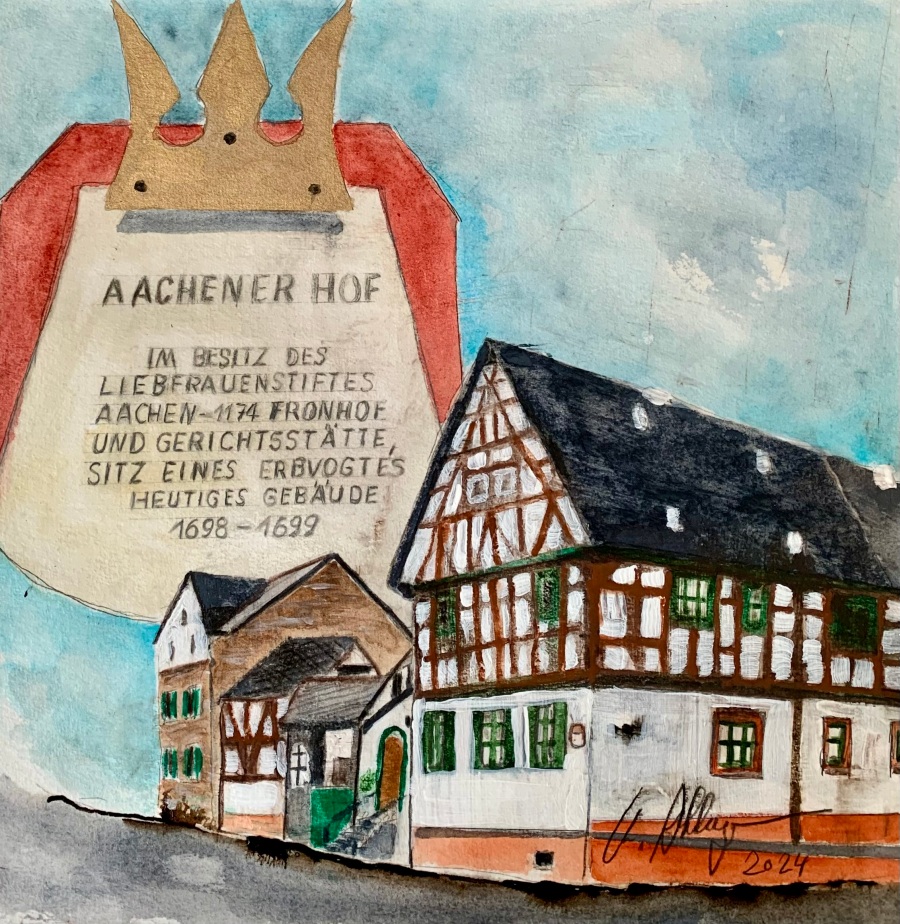 AACHENER HOF
IM BESITZ DES
LIEBFRAUENSTIFTES
AACHEN-1174 FRONHOF
UND GERICHTSSTÄTTE,
SITZ EINES ERBVOGTES
HEUTIGES GEBÄUDE
1698-1699
2024